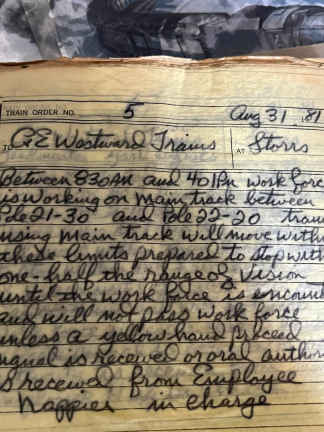 TRAIN ORDER NO. 5 Aug 31 81
TO C&E Westward Trains AT Storrs
Between 830AM and 401PM work force
is working on main track between
Pole 21-30 and Pole 22-20 trains
using main track will move within
these limits prepared to stop within
one-half the range of vision
until the work force is encount
and will not pass work force
unless a yellow hand proceed
signal is received or oral author
is received from Employee
Nappier in charge